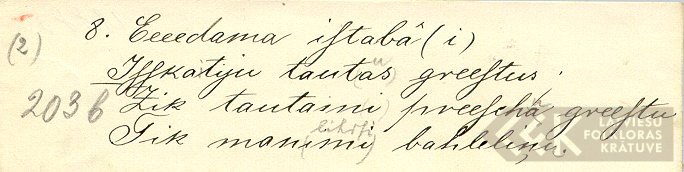 (2)
8. Eeeedama istabâ(i)
Isskatiju tautas (u) greestus.
2036
Zik tautami preeschâ greestu
Tik manimi (lihdsi) bahleliņu.
LATVIEŠU
FOLKLORAS
KRĀTUVE